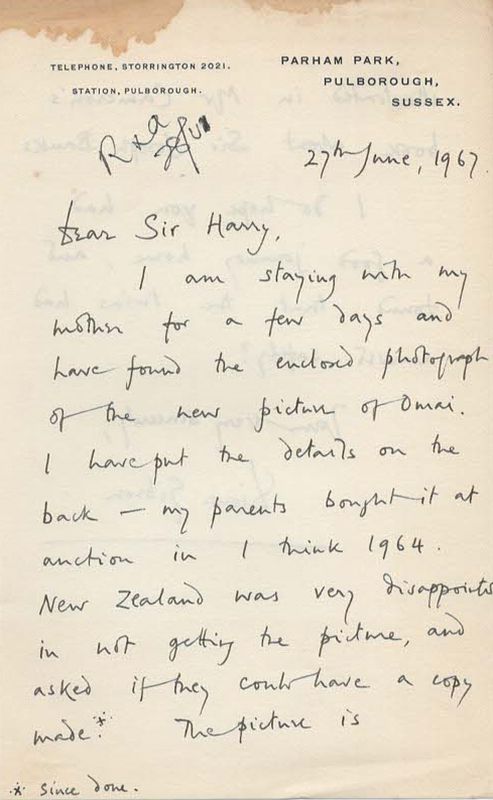 TELEPHONE, STORRINGTON 2021.
STATION, PULBOROUGH.
PARHAM PARK,
PULBOROUGH,
SUSSEX.
27th June, 1967.
Dear Sir Harry,
I am staying with my
mother for a few days and
have found the enclosed photograph
of the new picture of Omai.
I have put the details on the
back — my parents bought it at
auction in I think 1964.
New Zealand was very disappointed
in not getting the picture, and
asked if they could have a copy
made.* The picture is
* since done.